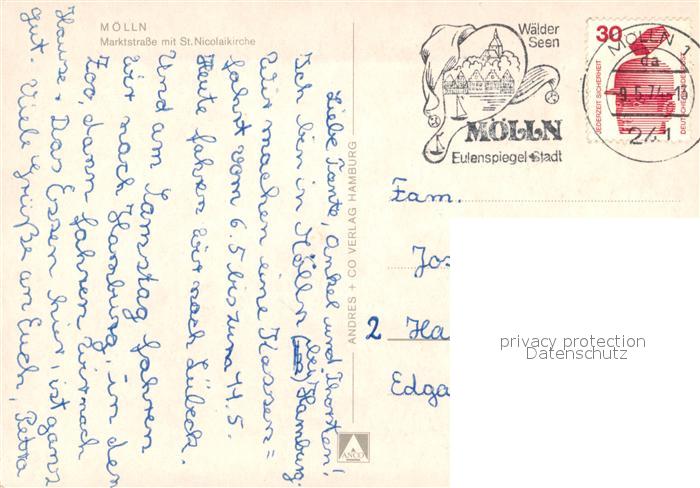 MÖLLN
Marktstraße mit St.Nicolaikirche
Liebe Tante, Onkel und Thorsten!
Ich bin in Mölln (bei Hamburg.
Wir machen eine Klassen=
fahrt vom 6.5 bis zum 11.5.
Heute fahren wir nach Lübeck.
Und am Samstag fahren
wir nach Hamburg, in den
Zoo, dann fahren wir nach
Hause. Das Essen hier, ist ganz
gut. Viele Grüße an Euch, Petra
ANDRES + CO VERLAG HAMBURG
ANCO
Wälder
Seen
MÖLLN
Eulenspiegel-Stadt
30
JEDERZEIT SICHERHEIT
DEUTSCHE BUNDESPOST
MÖLLN 1
da
9.5.74-13
241
Fam.
Jos
2 Ha
Edga
privacy protection
Datenschutz